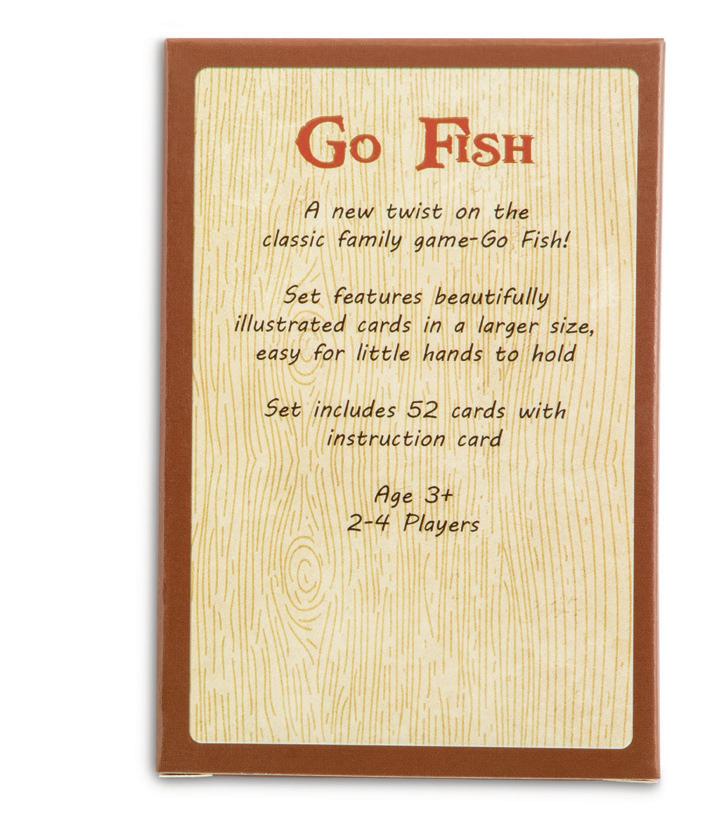 Go Fish
A new twist on the
classic family game-Go Fish!
Set features beautifully
illustrated cards in a larger size,
easy for little hands to hold
Set includes 52 cards with
instruction card
Age 3+
2-4 Players